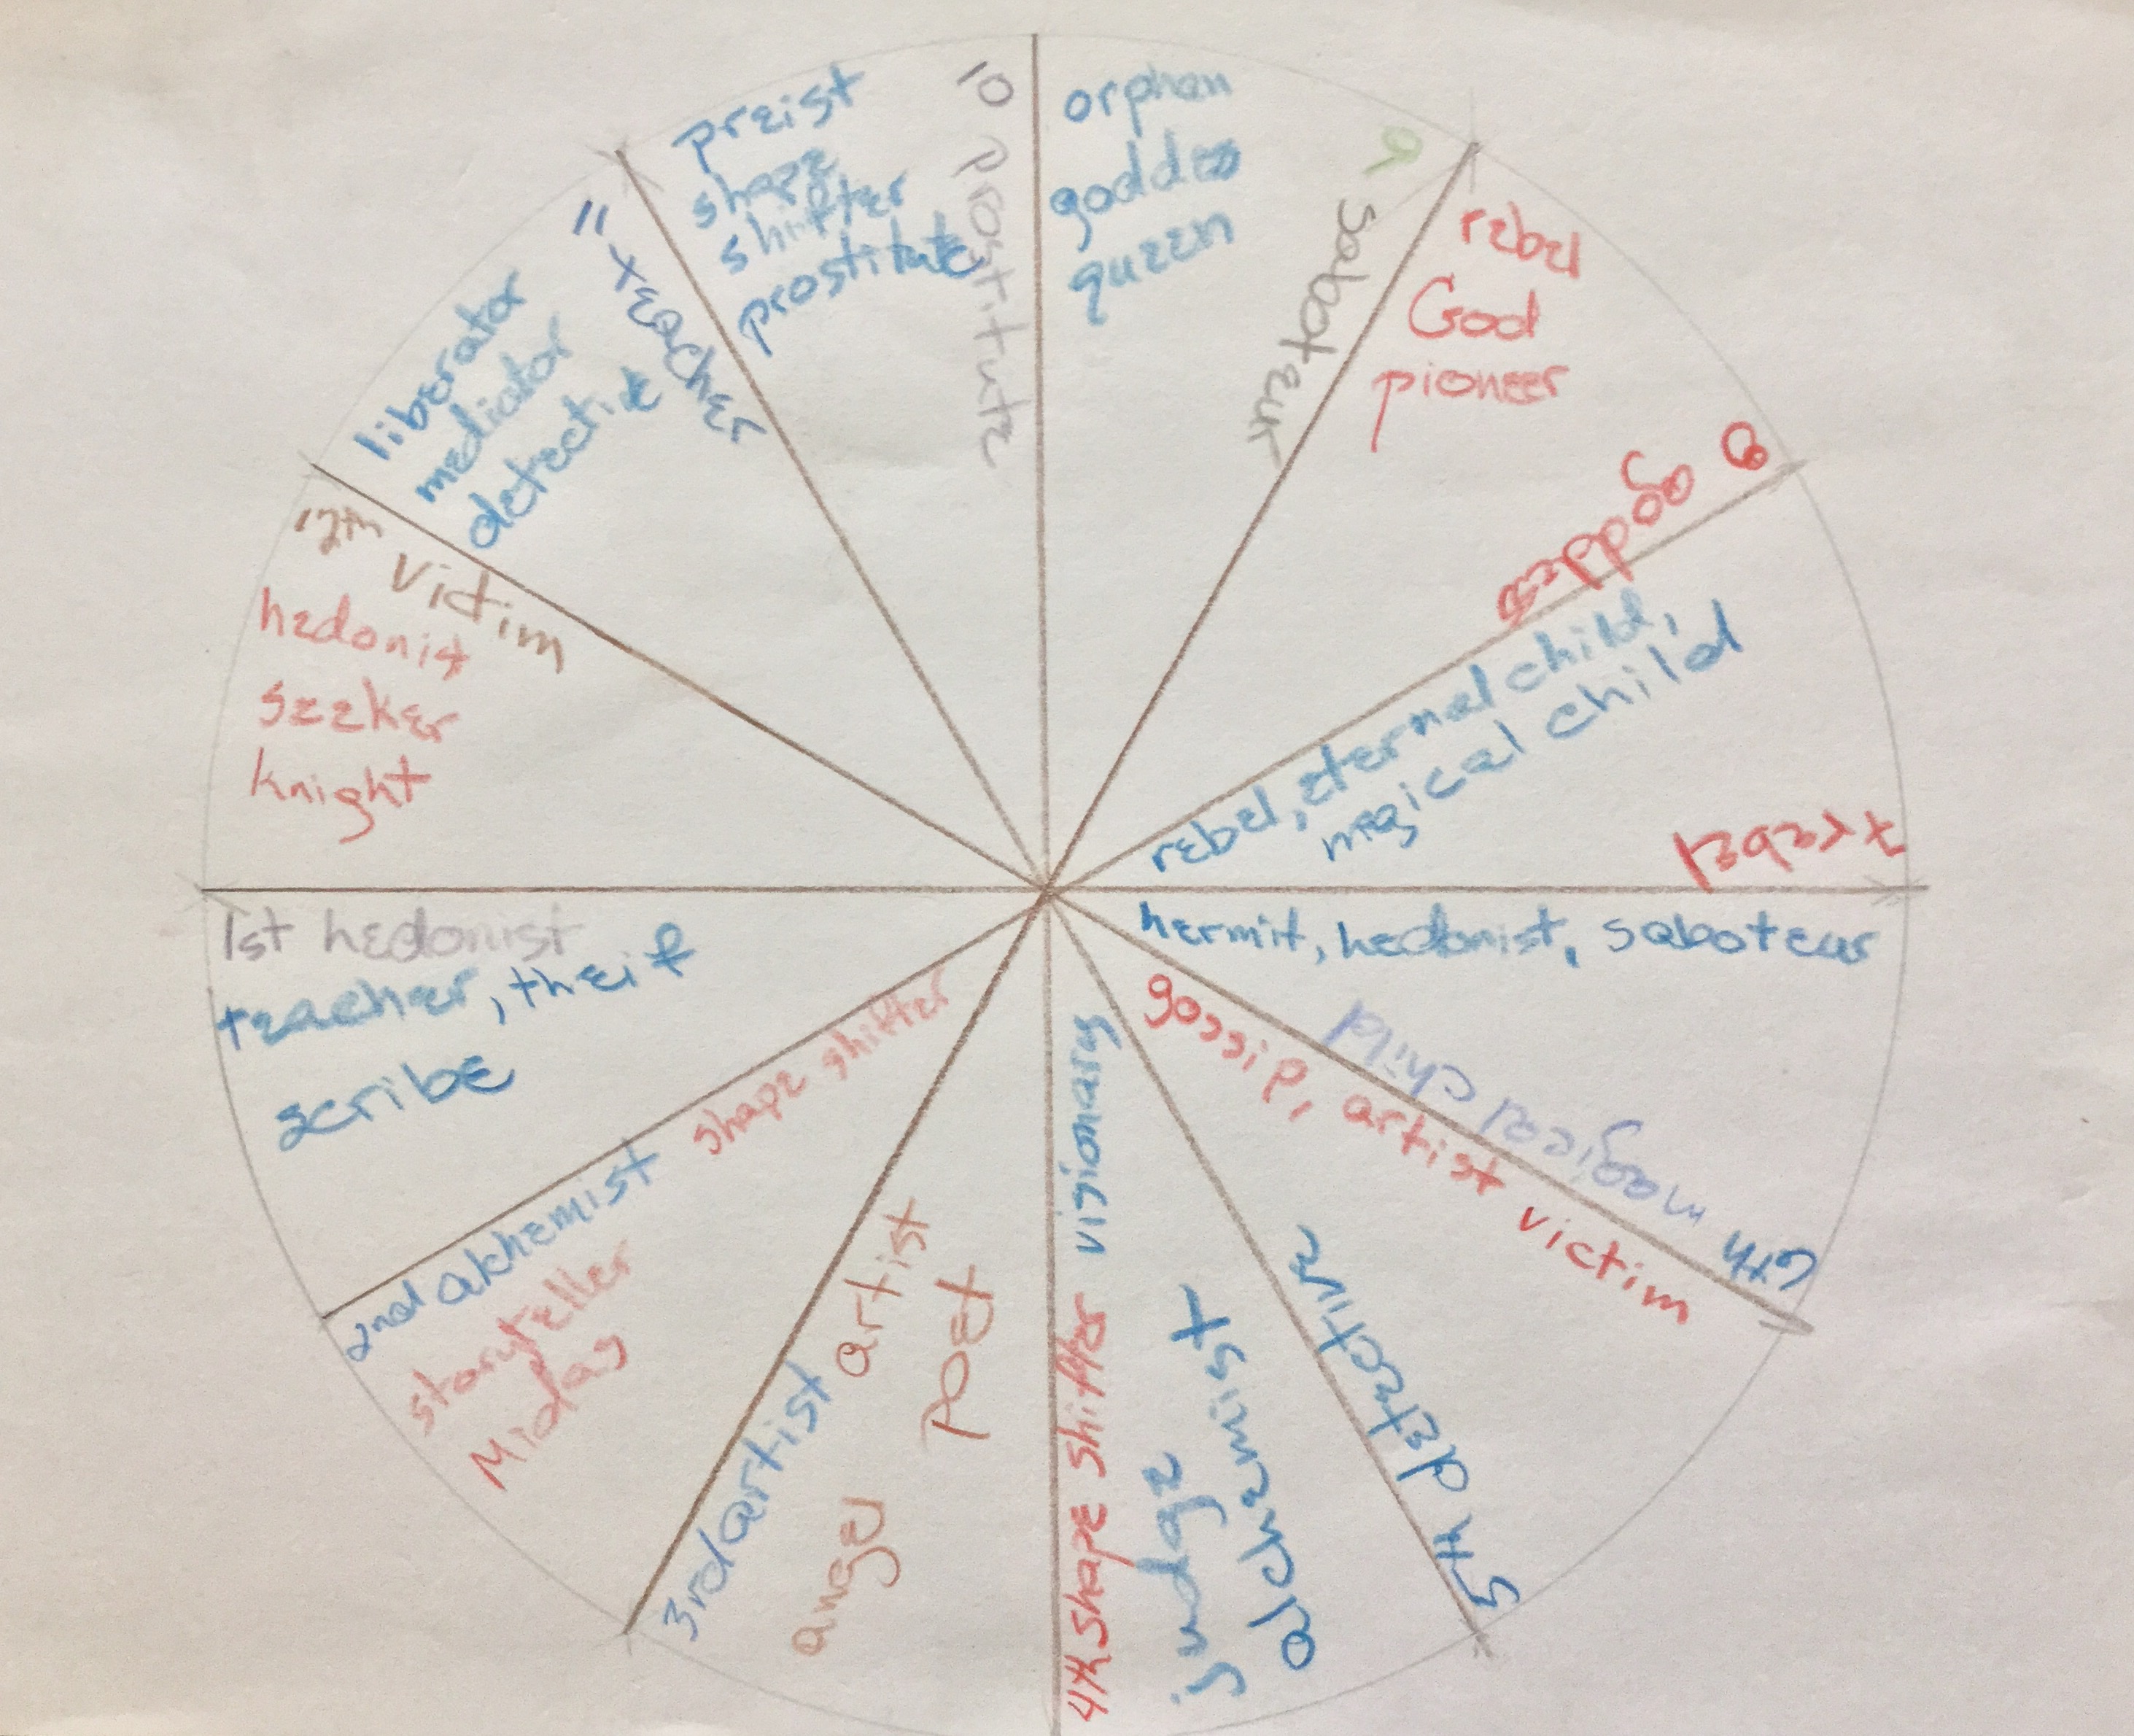 1st hedonist
teacher, theif
scribe
2nd alchemist
shape shifter
storyteller
Midas
3rd artist
artist
poet
angel
4th shape shifter
visionary
judge
alchemist
5th detective
gossip, artist victim
6th magical child
hermit, hedonist, saboteur
7 rebel
rebel, eternal child,
magical child
8 goddess
rebel
God
pioneer
9 saboteur
orphan
goddess
queen
10 prostitute
preist
shape
shifter
prostitute
11 teacher
liberator
mediator
detective
12th victim
hedonist
seeker
knight